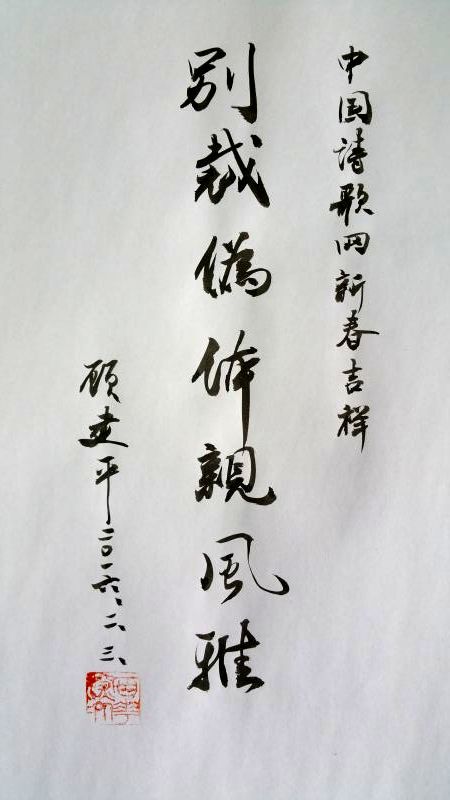 中国诗歌网新春吉祥
别裁偽体親風雅
顾建平二〇一六、二、三、